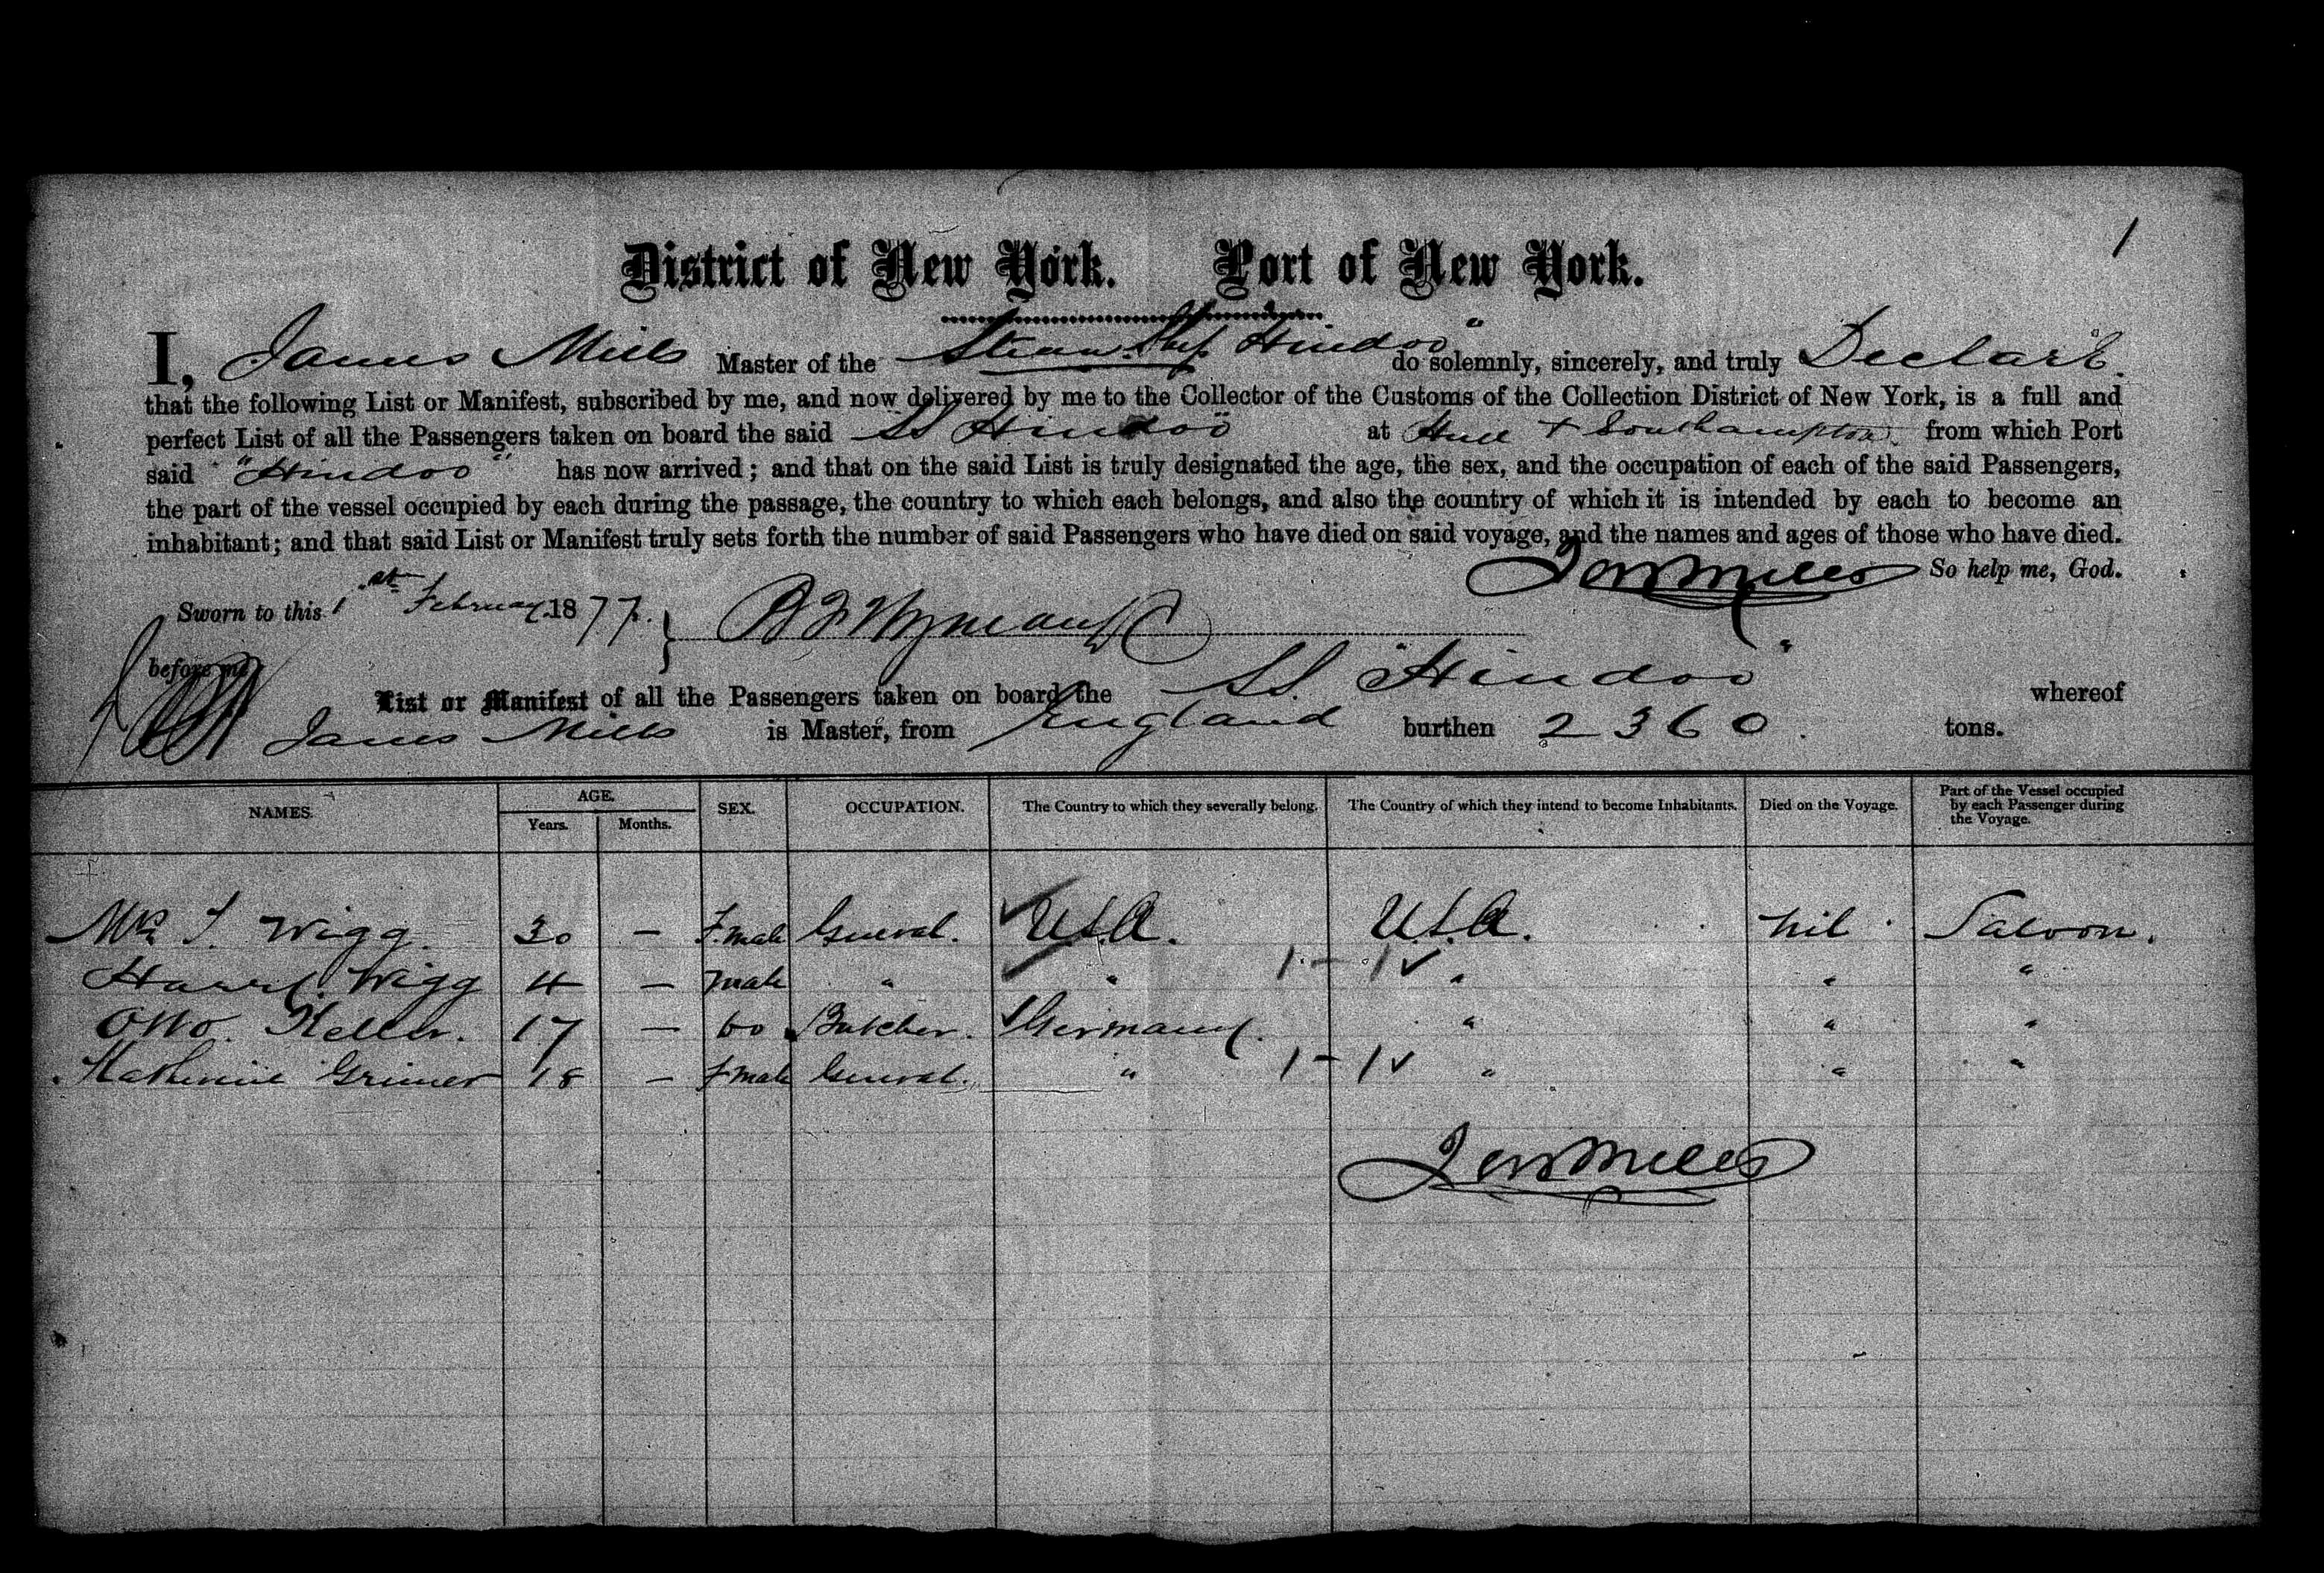 1
District of New York. Port of New York.
I, James Mills Master of the Steam Ship "Hindoo" do solemnly, sincerely, and truly Declare
that the following List or Manifest, subscribed by me, and now delivered by me to the Collector of the Customs of the Collection District of New York, is a full and
perfect List of all the Passengers taken on board the said SS Hindoo at Hull & Southampton from which Port
said "Hindoo" has now arrived; and that on the said List is truly designated the age, the sex, and the occupation of each of the said Passengers,
the part of the vessel occupied by each during the passage, the country to which each belongs, and also the country of which it is intended by each to become an
inhabitant; and that said List or Manifest truly sets forth the number of said Passengers who have died on said voyage, and the names and ages of those who have died.
Jas Mills So help me, God.
Sworn to this 1st February 1877.
before me
List or Manifest of all the Passengers taken on board the SS. "Hindoo" whereof
James Mills is Master, from England burthen 2360. tons.
NAMES. AGE. Years. Months. SEX. OCCUPATION. The Country to which they severally belong. The Country of which they intend to become Inhabitants. Died on the Voyage. Part of the Vessel occupied by each Passenger during the Voyage.
Mrs S. Wigg. 30 — Fmale General. U.S.A. U.S.A. nil Saloon.
Harry Wigg 4 — male " " 1 - 1 ✓ " " "
Otto Keller. 17 — Do Butcher. Germany. " " "
Katherine Grimer 18 — fmale General. " 1 - 1 ✓ " " "
Jas Mills